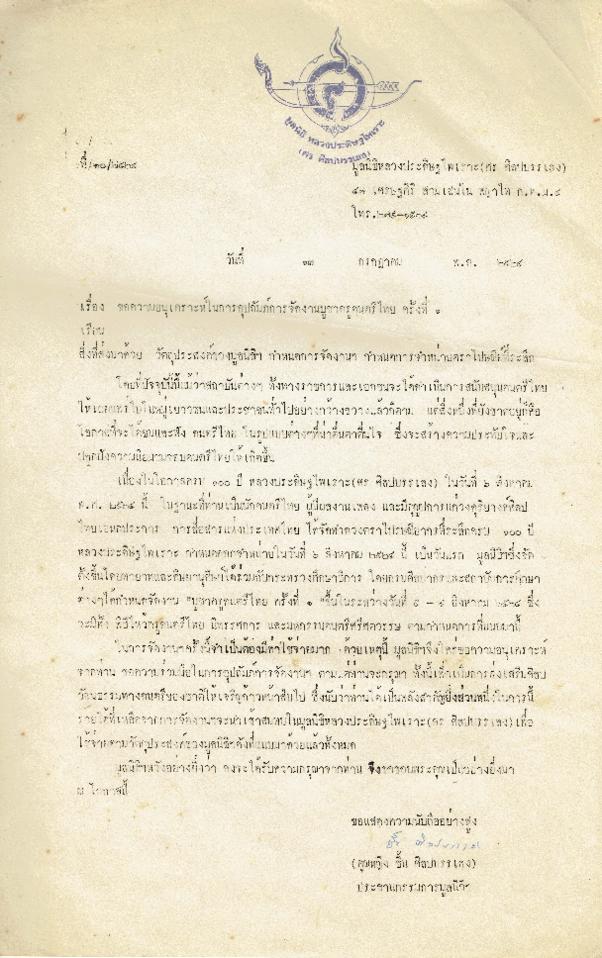 มูลนิธิ หลวงประดิษฐไพเราะ
(ศร ศิลปบรรเลง)
มูลนิธิหลวงประดิษฐไพเราะ(ศร ศิลปบรรเลง)
๔๗ เศรษฐศิริ สามเสนใน พญาไท ก.ท.ม.๔
โทร.
วันที่ ๑๓ กรกฎาคม พ.ศ. ๒๕๒๔
เรื่อง ขอความอนุเคราะห์ในการอุปถัมภ์การจัดงานบูชาครูดนตรีไทย ครั้งที่ ๑
เรียน
สิ่งที่ส่งมาด้วย วัตถุประสงค์ของมูลนิธิฯ กำหนดการจัดงานฯ กำหนดการจำหน่ายตราไปรษณีย์ที่ระลึก
โดยที่ปัจจุบันนี้แม้ว่าสถาบันต่างๆ ทั้งทางราชการและเอกชนจะได้ดำเนินการสนับสนุนดนตรีไทย
ให้เผยแพร่ไปในหมู่เยาวชนและประชาชนทั่วไปอย่างกว้างขวางแล้วก็ตาม แต่สิ่งหนึ่งที่ยังขาดอยู่ก็คือ
โอกาสที่จะได้ชมและฟัง ดนตรีไทย ในรูปแบบต่างๆที่น่าตื่นตาตื่นใจ ซึ่งจะสร้างความประทับใจและ
ปลูกฝังความนิยมชมชอบดนตรีไทยให้เกิดขึ้น
เนื่องในโอกาสครบ ๑๐๐ ปี หลวงประดิษฐไพเราะ(ศร ศิลปบรรเลง) ในวันที่ ๖ สิงหาคม
พ.ศ. ๒๕๒๔ นี้ ในฐานะที่ท่านเป็นนักดนตรีไทย ผู้มีผลงานเพลง และมีคุณูปการแก่วงดุริยางค์ศิลป
ไทยเอนกประการ การสื่อสารแห่งประเทศไทย ได้จัดทำดวงตราไปรษณียากรที่ระลึกครบ ๑๐๐ ปี
หลวงประดิษฐไพเราะ กำหนดออกจำหน่ายในวันที่ ๖ สิงหาคม ๒๕๒๔ นี้ เป็นวันแรก มูลนิธิฯซึ่งจัด
ตั้งขึ้นโดยทายาทและศิษยานุศิษย์ได้ร่วมกับกระทรวงศึกษาธิการ โดยกรมศิลปากรและสถาบันการศึกษา
ต่างๆได้กำหนดจัดงาน "บูชาครูดนตรีไทย ครั้งที่ ๑ "ขึ้นในระหว่างวันที่ สิงหาคม ๒๕๒๔ ซึ่ง
จะมีทั้ง พิธีไหว้ครูดนตรีไทย นิทรรศการ และมหกรรมดนตรีศรีศตวรรษ ตามกำหนดการที่แนบมานี้
ในการจัดงานฯครั้งนี้จำเป็นต้องมีค่าใช้จ่ายมาก ด้วยเหตุนี้ มูลนิธิฯจึงใคร่ขอความอนุเคราะห์
จากท่าน ขอความร่วมมือในการอุปถัมภ์การจัดงานฯ ตามแต่ท่านจะกรุณา ทั้งนี้เพื่อเป็นการส่งเสริมศิลป
วัฒนธรรมทางดนตรีของชาติให้เจริญก้าวหน้าสืบไป ซึ่งนับว่าท่านได้เป็นพลังสำคัญยิ่งส่วนหนึ่งในการนี้
รายได้ที่เหลือจากการจัดงานฯจะนำเข้าสมทบในมูลนิธิหลวงประดิษฐไพเราะ(ศร ศิลปบรรเลง)เพื่อ
ใช้จ่ายตามวัตถุประสงค์ของมูลนิธิฯดังที่แนบมาด้วยแล้วทั้งหมด
มูลนิธิฯหวังอย่างยิ่งว่า คงจะได้รับความกรุณาจากท่าน จึงขอขอบพระคุณเป็นอย่างยิ่งมา
ณ โอกาสนี้
ขอแสดงความนับถืออย่างสูง
(คุณหญิง ชิ้น ศิลปบรรเลง)
ประธานกรรมการมูลนิธิฯ